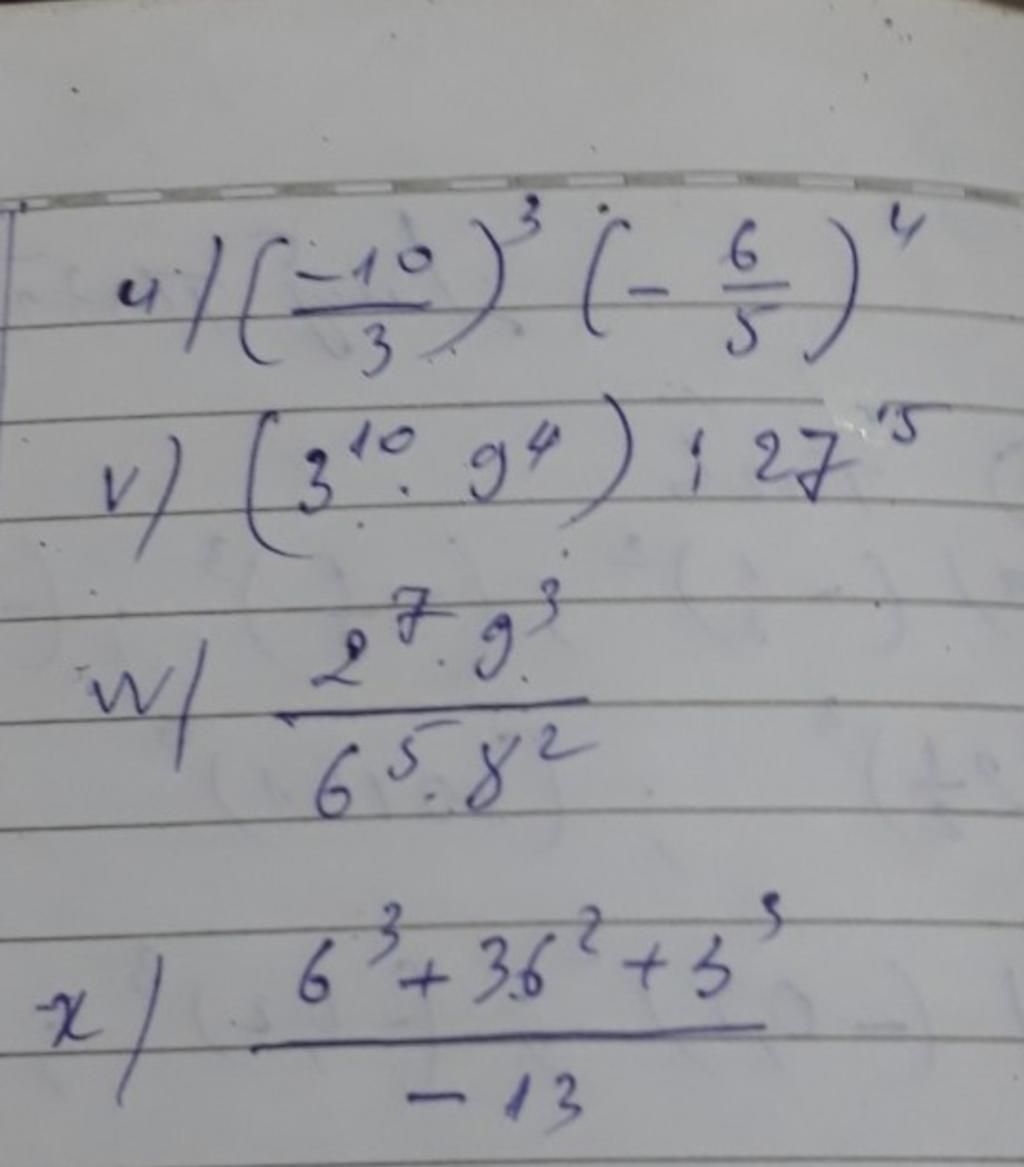 u) (-10/3)³ (- 6/5)⁴
v) (3¹⁰ . 9⁴) : 27⁵
w) (2⁷ . 9³)/(6⁵ . 8²)
x) (6³ + 3.6² + 3³)/(- 13)